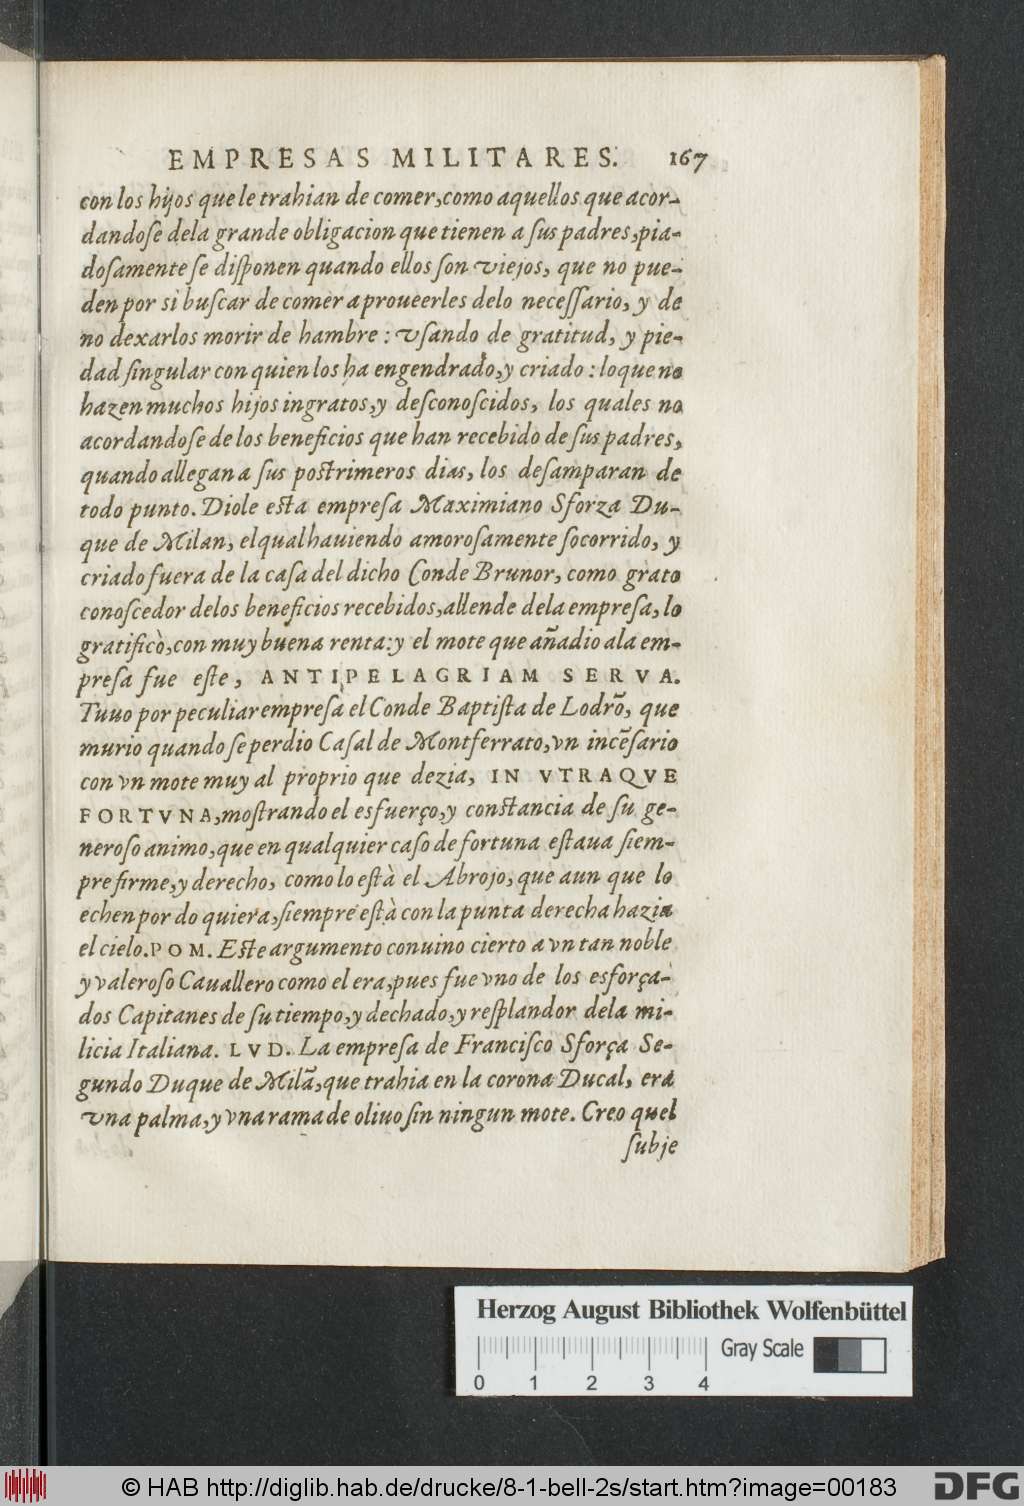 EMPRESAS MILITARES. 167
con los hijos que le trahian de comer, como aquellos que acor-
dandoſe dela grande obligacion que tienen a ſus padres, pia-
doſamente ſe diſponen quando ellos ſon viejos, que no pue-
den por si buſcar de comer a proueerles delo neceſſario, y de
no dexarlos morir de hambre: vſando de gratitud, y pie-
dad ſingular con quien los ha engendrado, y criado: lo que no
hazen muchos hijos ingratos, y deſconoſcidos, los quales no
acordandoſe de los beneficios que han recebido de ſus padres,
quando allegan a ſus poſtrimeros dias, los deſamparan de
todo punto. Diole eſta empreſa Maximiano Sforza Du-
que de Milan, el qual hauiendo amoroſamente ſocorrido, y
criado fuera de la caſa del dicho Conde Brunor, como grato
conoſcedor delos beneficios recebidos, allende dela empreſa, lo
gratificò, con muy buena renta: y el mote que añadio ala em-
preſa fue eſte, ANTIPELAGRIAM SERVA.
Tuuo por peculiar empreſa el Conde Baptiſta de Lodrõ, que
murio quando ſe perdio Caſal de Montferrato, vn incẽſario
con vn mote muy al proprio que dezia, IN VTRAQVE
FORTVNA, moſtrando el esfuerço, y conſtancia de ſu ge-
neroſo animo, que en qualquier caſo de fortuna eſtaua ſiem-
pre firme, y derecho, como lo eſtà el Abrojo, que aun que lo
echen por do quiera, ſiempre eſtà con la punta derecha hazia
el cielo. POM. Eſte argumento conuino cierto a vn tan noble
y valeroſo Cauallero como el era, pues fue vno de los esforça-
dos Capitanes de ſu tiempo, y dechado, y reſplandor dela mi-
licia Italiana. LVD. La empreſa de Franciſco Sforça Se-
gundo Duque de Milã, que trahia en la corona Ducal, era
vna palma, y vna rama de oliuo ſin ningun mote. Creo quel
ſubje
Herzog August Bibliothek Wolfenbüttel
Gray Scale
0 1 2 3 4
© HAB http://diglib.hab.de/drucke/8-1-bell-2s/start.htm?image=00183
DFG